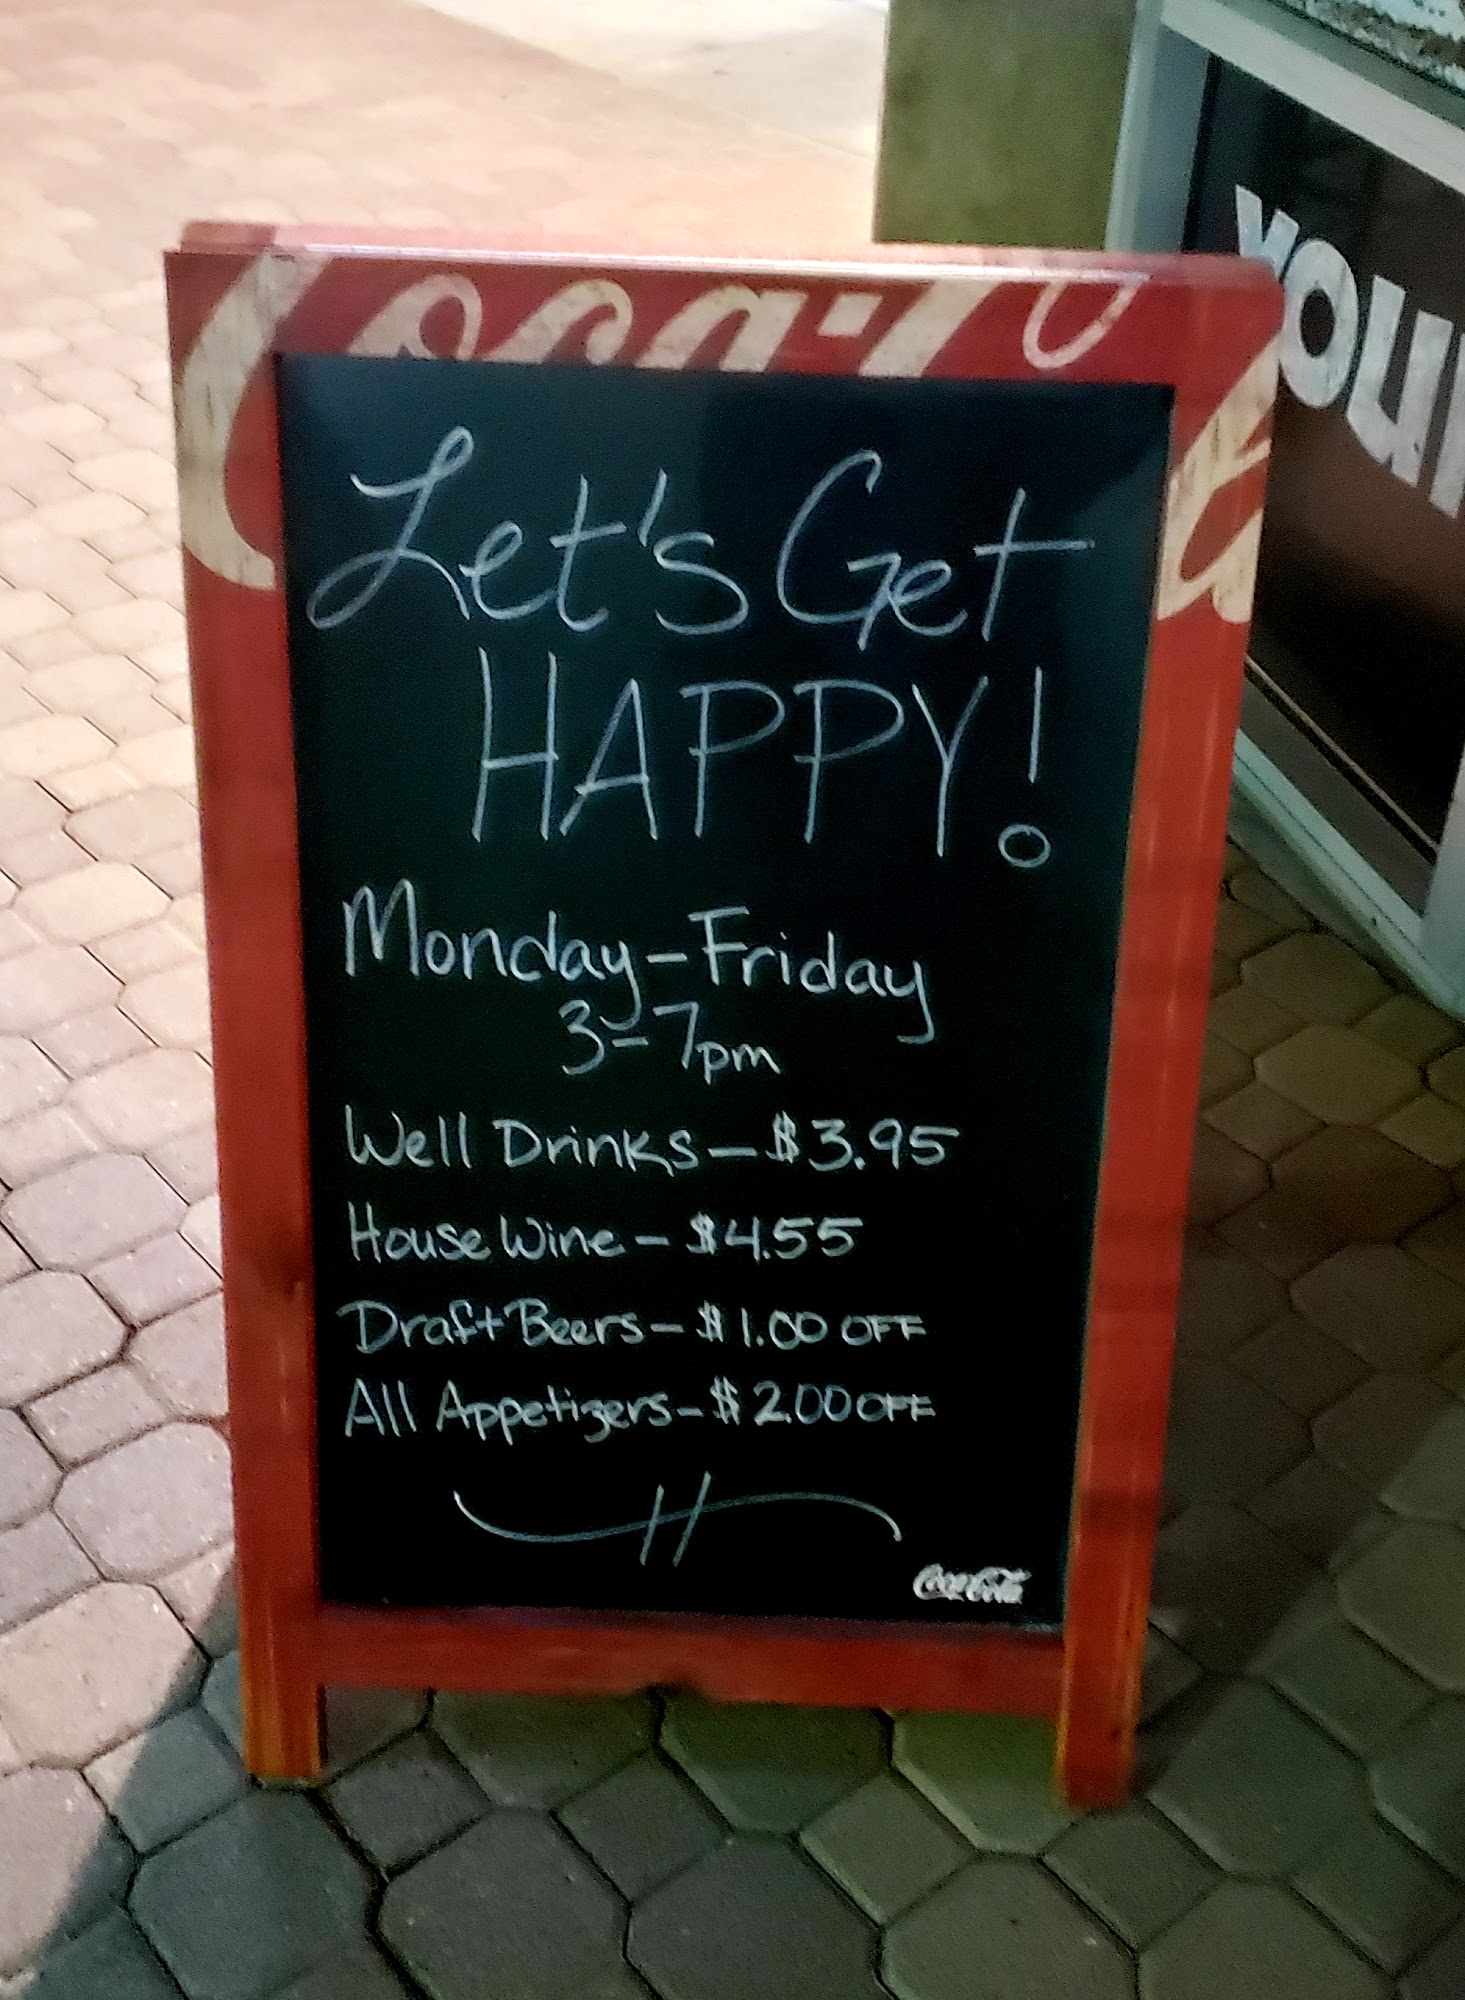 Coca-Co
Let's Get
HAPPY!
Monday-Friday
3-7pm
Well Drinks - $3.95
House Wine - $4.55
Draft Beers - $1.00 OFF
All Appetizers - $2.00 OFF
Coca-Cola
YOUR